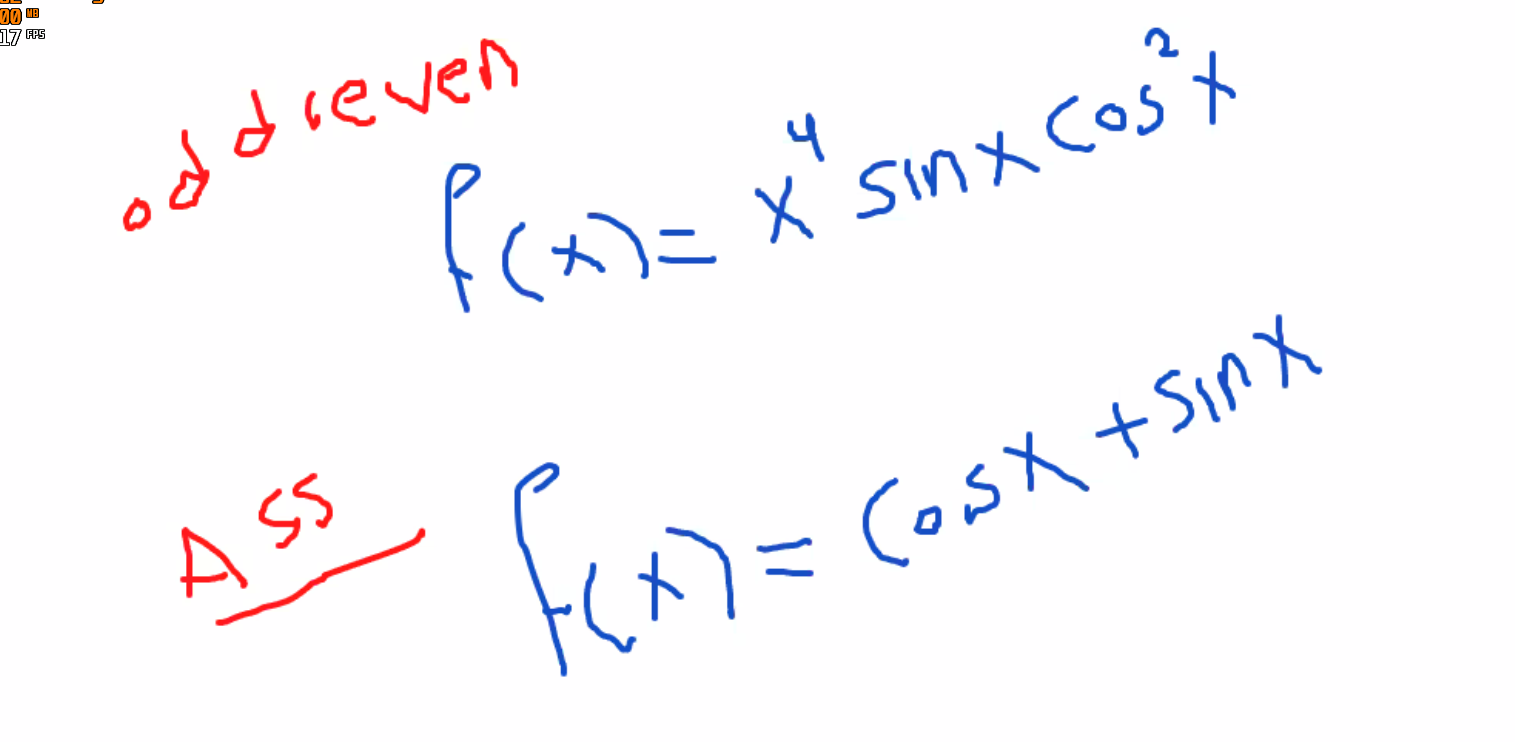 00 MB
17 FPS
odd, even
f(x) = x⁴ sin x cos² x
Ass
f(x) = cos x + sin x